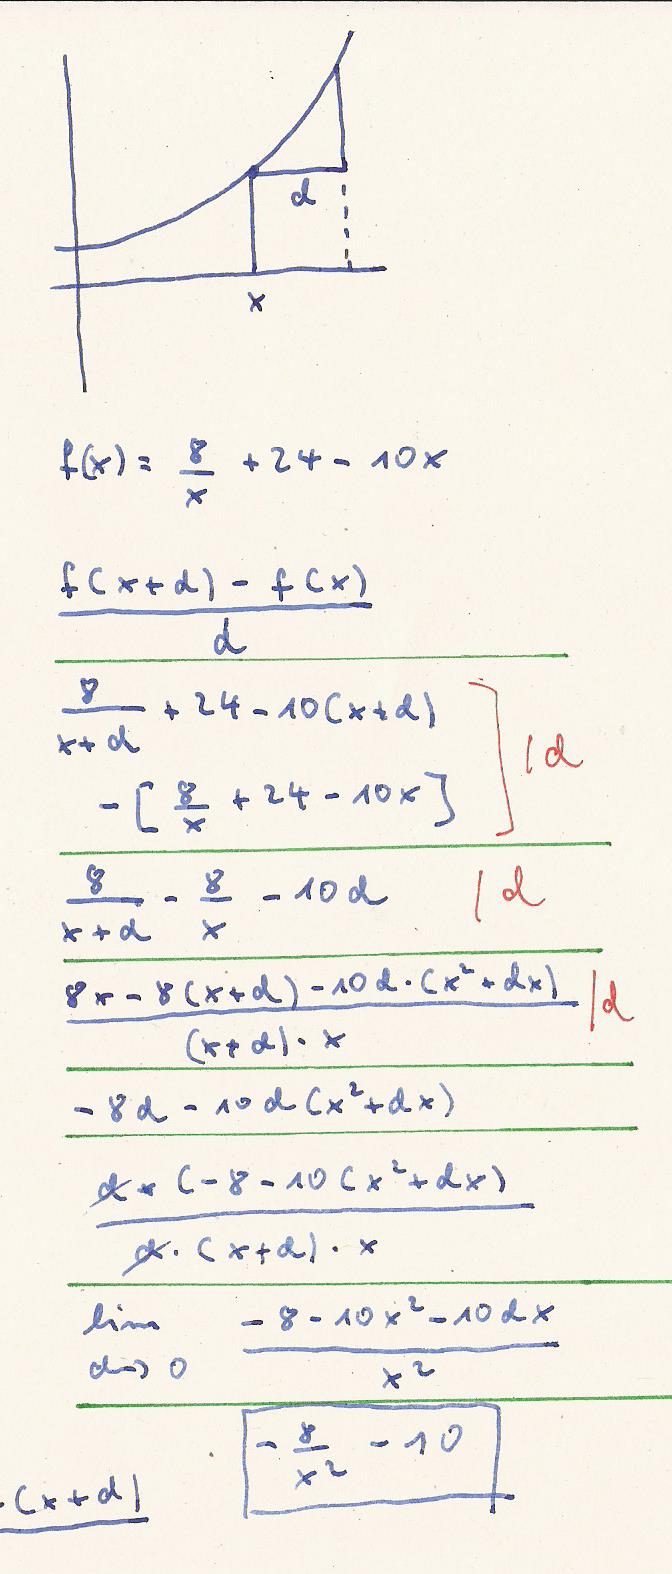 d
x
f(x) = 8/x + 24 - 10x
f(x+d) - f(x)
d
8/(x+d) + 24 - 10(x+d)
- [8/x + 24 - 10x] | d
8/(x+d) - 8/x - 10d | d
8x - 8(x+d) - 10d·(x²+dx) | d
(x+d)·x
- 8d - 10d(x²+dx)
d·(-8-10(x²+dx)
d·(x+d)·x
lim - 8 - 10x² - 10dx
d→0 x²
- 8/x² - 10
·(x+d)